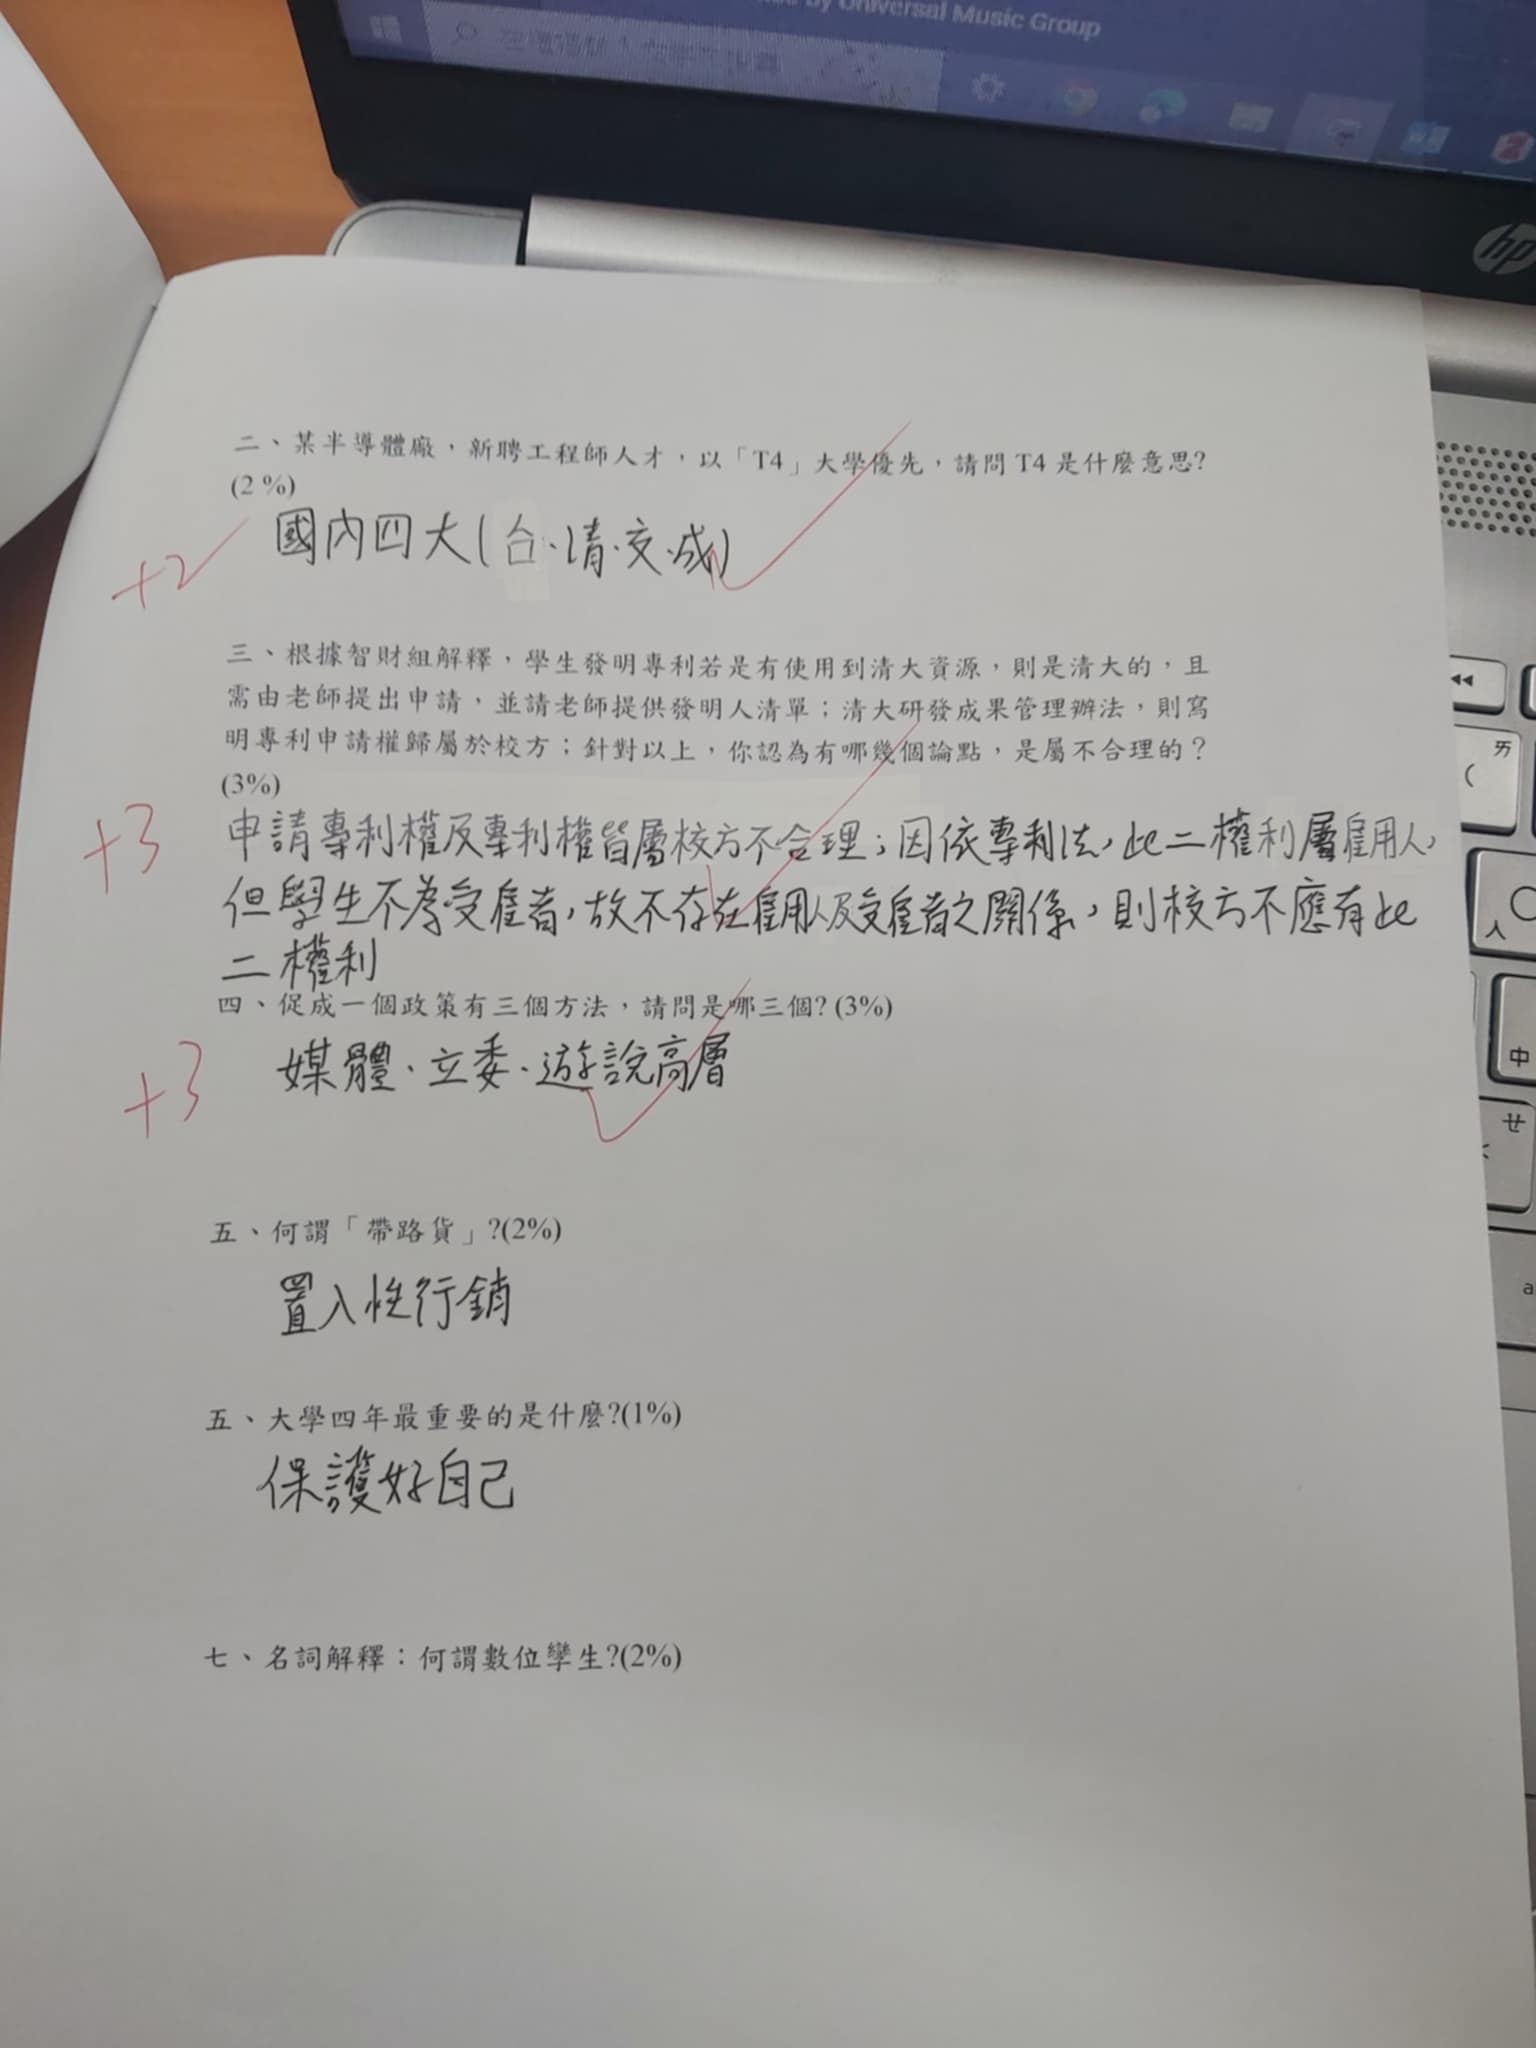 by Universal Music Group
hp
二、某半導體廠，新聘工程師人才，以「T4」大學優先，請問 T4 是什麼意思?
(2 %)
國內四大(台·清·交·成)
+2
三、根據智財組解釋，學生發明專利若是有使用到清大資源，則是清大的，且
需由老師提出申請，並請老師提供發明人清單；清大研發成果管理辦法，則寫
明專利申請權歸屬於校方；針對以上，你認為有哪幾個論點，是屬不合理的？
(3%)
+3
申請專利權及專利權皆屬校方不合理；因依專利法，此二權利屬雇用人，
但學生不為受雇者，故不存在雇用人及受雇者之關係，則校方不應有此
二權利
四、促成一個政策有三個方法，請問是哪三個? (3%)
+3
媒體·立委·遊說高層
五、何謂「帶路貨」?(2%)
置入性行銷
五、大學四年最重要的是什麼?(1%)
保護好自己
七、名詞解釋：何謂數位孿生?(2%)
ㄞ
人
中
ㄝ
a